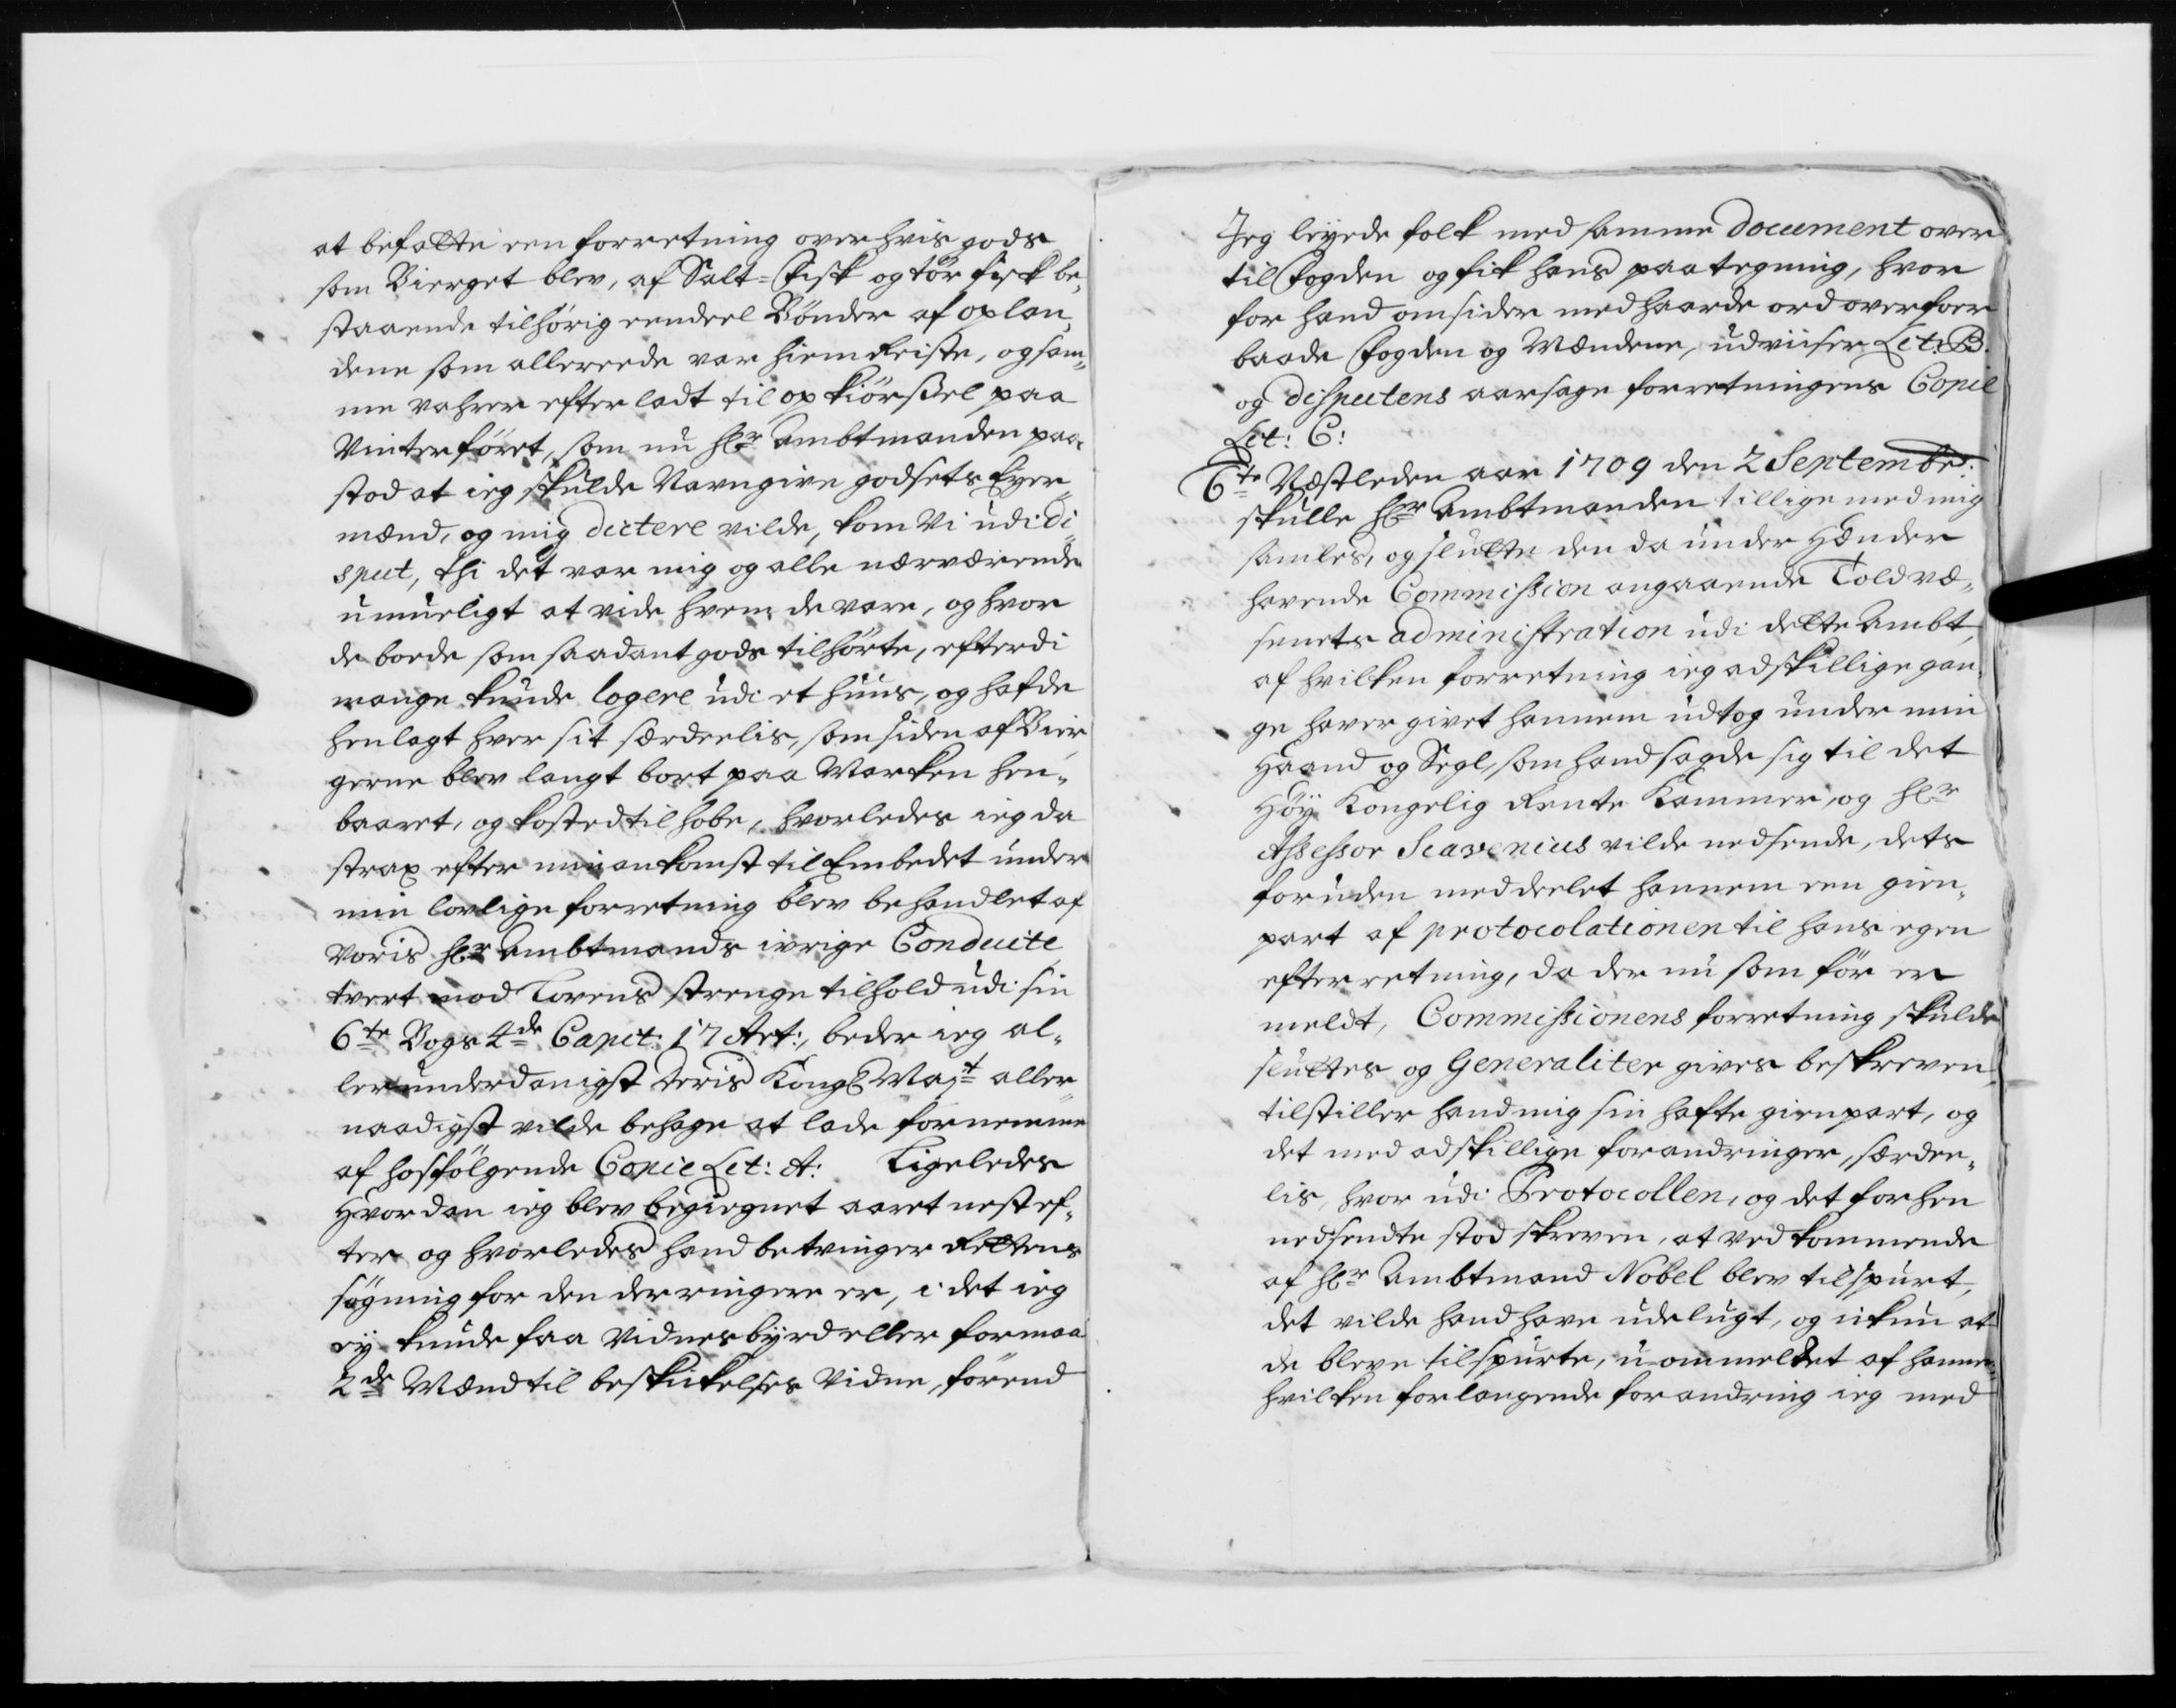 at befatte een forretning over hvis gods
som Bierget blev, af Salt-Fisk og tör fisk be„
staaende tilhörig eendeel Bönder af oplan„
dene som allereede var hiem Reiste, og sam„
me vahrer efterladt til opkiörsel paa
Vinterföret, som nu hr Ambtmanden paa„
stod at ieg skulde Navngive godsets Eyer„
mænd, og mig dictere vilde, kom Vi udi di„
sput, thi det var mig og alle nærværende
umueligt at vide hvem de vare, og hvor
de boede som saadant gods tilhörte, efterdi
mange kunde logere udi et huus, og hafde
henlagt hver sit særdeelis, som siden af Bier„
gerne blev langt bort paa Marken hen„
baaret, og kostedtil hobe, hvorledes ieg da
strax efter min ankomst til Embedet under
min lovlige forretning blev behandlet af
voris hr Ambtmands ivrige Conduite
tvert mod Lovens strenge tilhold udi sin
6te Bogs 4de Capit: 17 Art:, beder ieg al„
lerunderdanigst Deris Kongl Mayt aller„
naadigst vilde behage at lade fornemme
af hosfölgende Copie Lit: A: Ligeledes
Hvordan ieg blev begiegnet aaret nest ef„
ter og hvorledes hand betvinger Rettens
sögning for den der ringere er, i det ieg
ey kunde faa Vidnesbyrd eller formaa
2de Mænd til beskikelses Vidne, förend
Jeg leyede folk med samme document over
til Fogden og fik hans paategning, hvor
for hand omsider med haarde ord overfoer
baade Fogden og Mændene, udviiser Lit: B.
og disputens aarsage forretningens Copie
Lit: C:
6te Næstleden aar 1709 den 2 Septembr:
skulle hr Ambtmanden tillige med mig
samles, og slutte den da under Hænder
havende Commission angaaende Toldvæ„
senets administration udi dette Ambt,
af hvilken forretning ieg adskillige gan„
ge haver givet hannem udtog under min
Haand og Segl, som hand sagde sig til det
Höy Kongelig Rente Kammer, og hr
Assessor Scavenius vilde nedsende, dets
foruden meddeelet hannem een gien„
part af protocolationen til hans egen
efterretning, da der nu som för er
meldt, Commissionens forretning skulde
sluttes og Generaliter gives beskreven,
tilstiller hand mig sin hafte gienpart, og
det med adskillige forandringer, særdee„
lis, hvor udi Protocollen, og det forhen
nedsendte stod skreven, at vedkommende
af hr Ambtmand Nobel blev tilspurt,
det vilde hand have udelugt, og ikun at
de bleve tilspurte, uommeldet af hannem
hvilken forlangende forandring ieg med